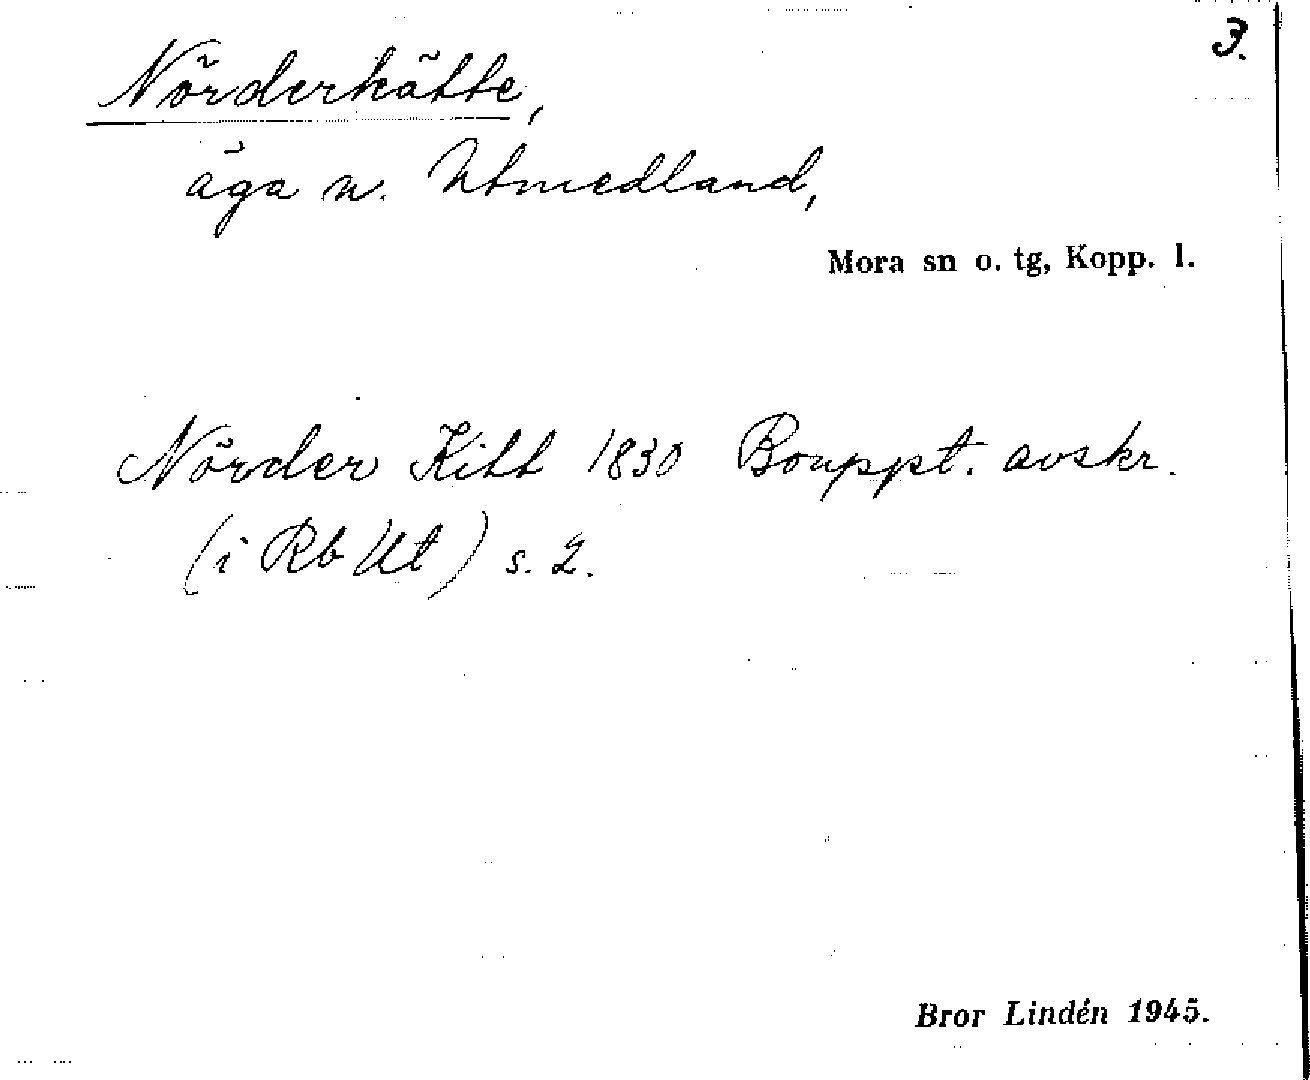 3.
Nörderkätte,
äga n. Utmedland,
Mora sn o. tg, Kopp. l.
Nörder Kitt 1830 Bouppt. avskr.
(i Rb Ut) s. 2.
Bror Lindén 1945.